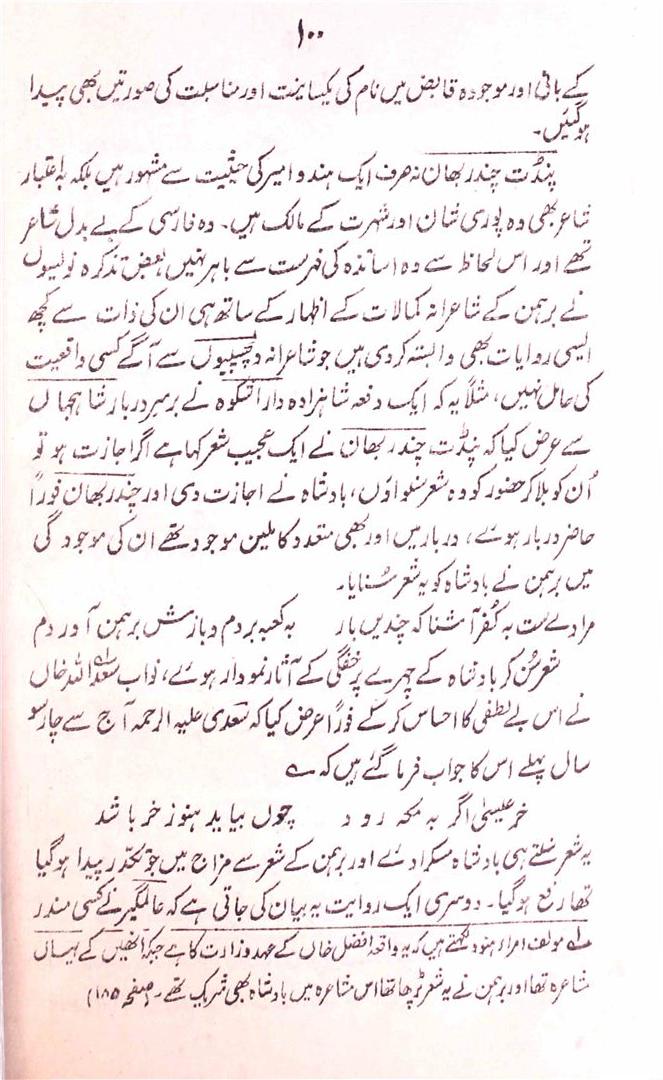 ۱۰۰
کے بانی اور موجودہ قابض میں نام کی یکسانیت اور مناسبت کی صورتیں بھی پیدا
ہوگئیں۔
پنڈت چندر بھان نہ صرف ایک ہندو امیر کی حیثیت سے مشہور ہیں بلکہ بہ اعتبار
شاعر بھی وہ پوری شان اور شہرت کے مالک ہیں۔ وہ فارسی کے بے بدل شاعر
تھے اور اس لحاظ سے وہ اساتذہ کی فہرست سے باہر نہیں بعض تذکرہ نویسوں
نے برہمن کے شاعرانہ کمالات کے اظہار کے ساتھ ہی ان کی ذات سے کچھ
ایسی روایات بھی وابستہ کر دی ہیں جو شاعرانہ دلچسپیوں سے آگے کسی واقعیت
کی حامل نہیں، مثلاً یہ کہ ایک دفعہ شاہزادہ دارا شکوہ نے برسرِ دربار شاہجہاں
سے عرض کیا کہ پنڈت چندر بھان نے ایک عجیب شعر کہا ہے اگر اجازت ہو تو
اُن کو بلا کر حضور کو وہ شعر سنواؤں، بادشاہ نے اجازت دی اور چندر بھان فوراً
حاضر دربار ہوئے، دربار میں اور بھی متعدد کاملین موجود تھے ان کی موجودگی
میں برہمن نے بادشاہ کو یہ شعر سُنایا۔
مرا دلے ست بہ کُفر آشنا کہ چندیں بار بہ کعبہ بردم و بازمش برہمن آوردم
شعر سُن کر بادشاہ کے چہرے پر خفگی کے آثار نمودار ہوئے، نواب سعد اللہ خاں
نے اس بے لطفی کا احساس کر کے فوراً عرض کیا کہ سعدی علیہ الرحمہ آج سے چار سو
سال پہلے اس کا جواب فرما گئے ہیں کہ ؎
خرِ عیسیٰ اگر بہ مکہ رود چوں بیاید ہنوز خر باشد
یہ شعر سنتے ہی بادشاہ مسکرا دئے اور برہمن کے شعر سے مزاج میں جو تکدّر پیدا ہوگیا
تھا رفع ہوگیا۔ دوسری ایک روایت یہ بیان کی جاتی ہے کہ عالمگیر نے کسی مندر
؎۱ مولف امراء ہنود لکھتے ہیں کہ یہ واقعہ افضل خاں کے عہد وزارت کا ہے جبکہ انھیں کے یہاں
مشاعرہ تھا اور برہمن نے یہ شعر پڑھا تھا اس مشاعرہ میں بادشاہ بھی شریک تھے۔ (صفحہ ۱۸۵)